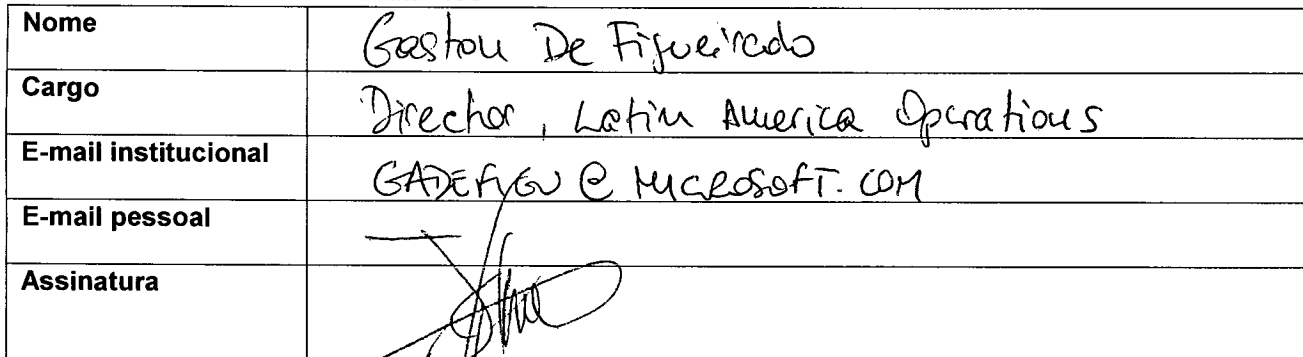 Nome Gaston De Figueiredo
Cargo Director, Latin America Operations
E-mail institucional GADEFIGU @ MICROSOFT.COM
E-mail pessoal —
Assinatura